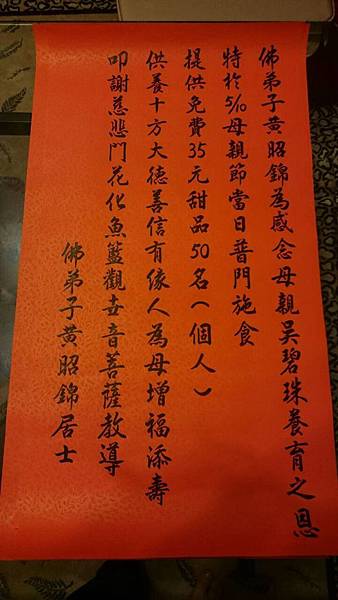 佛弟子黃昭錦為感念母親吳碧珠養育之恩
特於5/10母親節當日普門施食
提供免費35元甜品50名(個人)
供養十方大德善信有緣人為母增福添壽
叩謝慈悲門花化魚籃觀世音菩薩教導
佛弟子黃昭錦居士